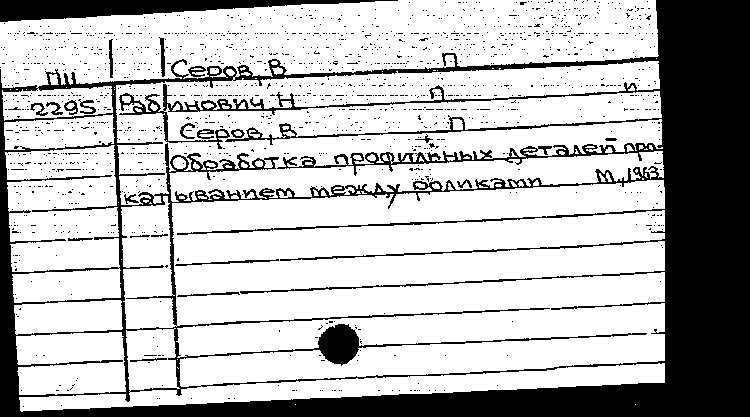 Серов, В П
ПЦ
2295 Рабинович, Н П и
Серов, В П
Обработка профильных деталей про-
катыванием между роликами М., 1963